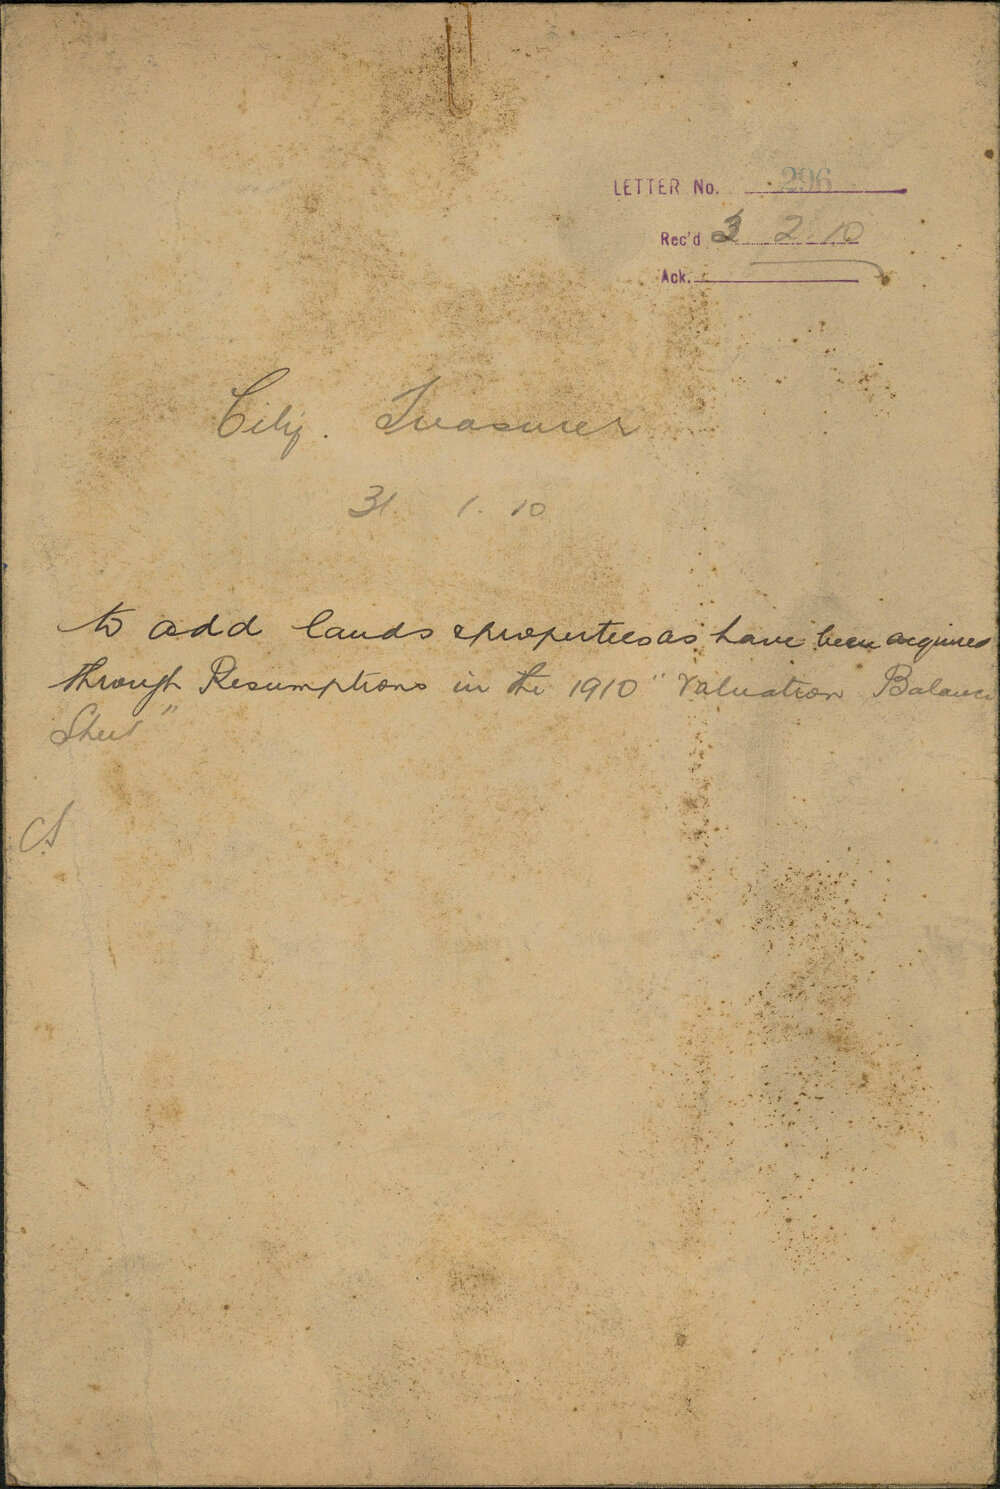 LETTER No. 296
Rec'd 3 2. 10
Ack.
City. Treasurer
31. 1. 10
to add lands & properties as have been acquired
through Resumptions in the 1910 "Valuation Balance
Sheet"